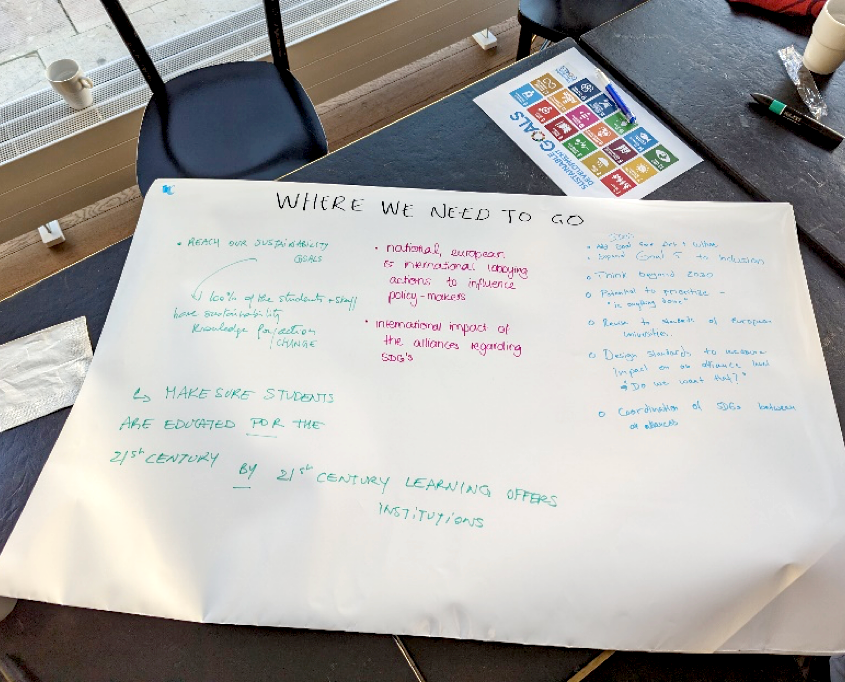 SUSTAINABLE
DEVELOPMENT
GOALS
WHERE WE NEED TO GO
• REACH OUR SUSTAINABILITY
GOALS
100% of the students + staff
have sustainability
knowledge for/action
/CHANGE
↳ MAKE SURE STUDENTS
ARE EDUCATED FOR THE
21st CENTURY BY 21st CENTURY LEARNING OFFERS
INSTITUTIONS
• national, european
& international lobbying
actions to influence
policy-makers
• International impact of
the alliances regarding
SDG's
Goal 5 to inclusion
Think beyond 2030
Potential to prioritize -
"is anything done"
to standards of European
Universities.
Design standards to measure
impact on alliance level
"Do we want that?"
Coordination of SDGs between
alliances